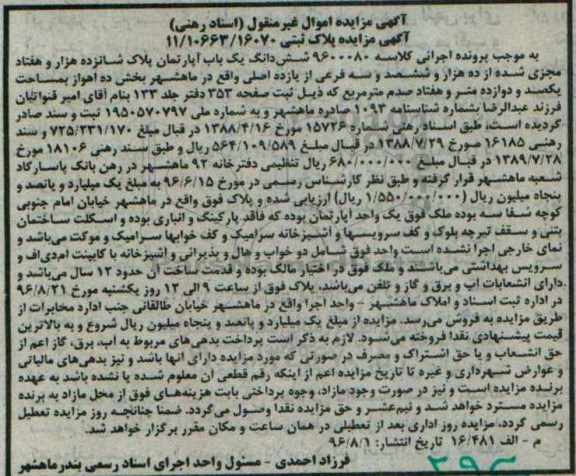 آگهی مزایده اموال غیرمنقول (اسناد رهنی)
آگهی مزایده پلاک ثبتی ۱۱/۱۰۶۶۳/۱۶۰۷۰
به موجب پرونده اجرائی کلاسه ۹۶۰۰۰۸۰ شش‌دانگ یک باب آپارتمان پلاک شانزده هزار و هفتاد
مجزی شده از ده هزار و ششصد و سه فرعی از یازده اصلی واقع در ماهشهر بخش ده اهواز بمساحت
یکصد و دوازده متر و هفتاد صدم مترمربع که ذیل ثبت صفحه ۳۵۳ دفتر جلد ۱۳۳ بنام آقای امیر قنواتیان
فرزند عبدالرضا بشماره شناسنامه ۱۰۹۳ صادره ماهشهر و به شماره ملی ۱۹۵۰۵۷۰۷۹۷ ثبت و سند صادر
گردیده است، طبق اسناد رهنی شماره ۱۵۷۲۶ مورخ ۱۳۸۸/۴/۱۶ در قبال مبلغ ۷۲۵/۲۳۱/۱۷۰ و سند
رهنی ۱۶۱۸۵ مورخ ۱۳۸۸/۷/۲۹ در قبال مبلغ ۵۶۴/۱۰۹/۵۸۹ ریال و طبق سند رهنی ۱۸۱۰۶ مورخ
۱۳۸۹/۷/۲۸ در قبال مبلغ ۶۸۰/۰۰۰/۰۰۰ ریال تنظیمی دفترخانه ۹۲ ماهشهر در رهن بانک پاسارگاد
شعبه ماهشهر قرار گرفته و طبق نظر کارشناس رسمی در مورخ ۹۶/۶/۱۵ به مبلغ یک میلیارد و پانصد و
پنجاه میلیون ریال (۱/۵۵۰/۰۰۰/۰۰۰ ریال) ارزیابی شده و پلاک فوق واقع در ماهشهر خیابان امام جنوبی
کوچه شفا سه بوده ملک فوق یک واحد آپارتمان بوده که فاقد پارکینگ و انباری بوده و اسکلت ساختمان
بتنی و سقف تیرچه بلوک و کف سرویسها و آشپزخانه سرامیک و کف خوابها سرامیک و موکت می‌باشد و
نمای خارجی اجرا نشده است واحد فوق شامل دو خواب و هال و پذیرائی و آشپزخانه با کابینت ام‌دی‌اف و
سرویس بهداشتی می‌باشند و ملک فوق در اختیار مالک بوده و قدمت ساخت آن حدود ۱۲ سال می‌باشد و
دارای انشعابات آب و برق و گاز و تلفن می‌باشد، پلاک فوق از ساعت ۹ الی ۱۲ روز یکشنبه مورخ ۹۶/۸/۲۱
در اداره ثبت اسناد و املاک ماهشهر - واحد اجرا واقع در ماهشهر خیابان طالقانی جنب اداره مخابرات از
طریق مزایده به فروش می‌رسد. مزایده از مبلغ یک میلیارد و پانصد و پنجاه میلیون ریال شروع و به بالاترین
قیمت پیشنهادی نقدا فروخته می‌شود. لازم به ذکر است پرداخت بدهی‌های مربوط به آب، برق، گاز اعم از
حق انشعاب و یا حق اشتراک و مصرف در صورتی که مورد مزایده دارای آنها باشد و نیز بدهی‌های مالیاتی
و عوارض شهرداری و غیره تا تاریخ مزایده اعم از اینکه رقم قطعی آن معلوم شده یا نشده باشد به عهده
برنده مزایده است و نیز در صورت وجود مازاد، وجوه پرداختی بابت هزینه‌های فوق از محل مازاد به برنده
مزایده مسترد خواهد شد و نیم‌عشر و حق مزایده نقدا وصول می‌گردد. ضمنا چنانچه روز مزایده تعطیل
رسمی گردد، مزایده روز اداری بعد از تعطیلی در همان ساعت و مکان مقرر برگزار خواهد شد.
م - الف ۱۶/۴۸۱ تاریخ انتشار: ۹۶/۸/۱
فرزاد احمدی - مسئول واحد اجرای اسناد رسمی بندرماهشهر